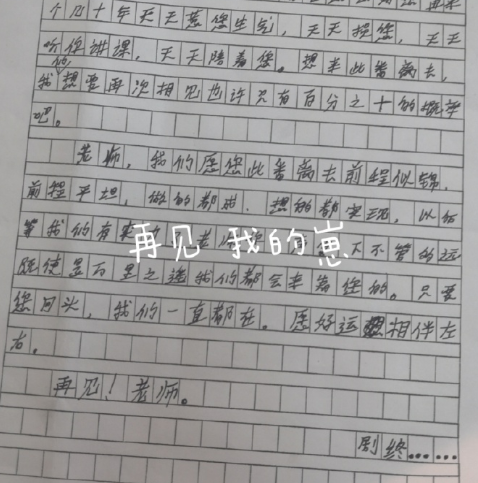 个几十年天天惹您生气，天天挨您，天天
听你讲课，天天陪着您。想来此番离去，
我们想要再次相见也许只有百分之十的概率
吧。
老师，我们愿您此番离去前程似锦，
前程平坦，做的都对，想的都实现，以后
等我们有
不管多远
既使是百里之遥我们都会来看您的。只要
您回头，我们一直都在。愿好运相伴左
右。
再见！老师。
剧终……
再见 我的崽